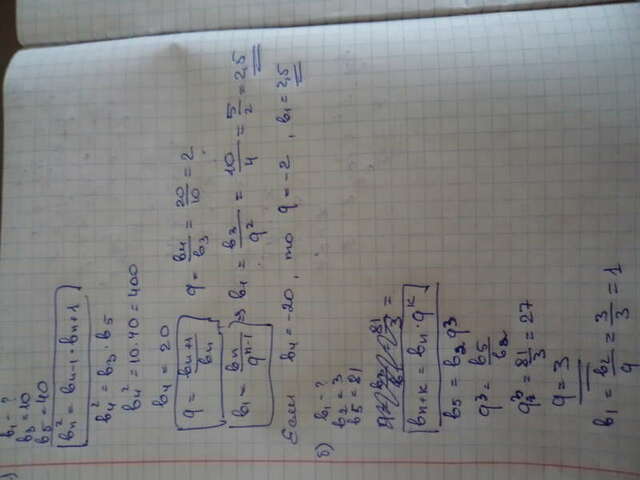 )
b₁ - ?
b₃ = 10
b₅ = 40
bₙ² = bₙ₋₁ · bₙ₊₁
b₄² = b₃ b₅
b₄² = 10 · 40 = 400
b₄ = 20
q = bₙ₊₁/bₙ q = b₄/b₃ = 20/10 = 2
b₁ = bₙ/qⁿ⁻¹ => b₁ = b₃/q² = 10/4 = 5/2 = 2,5
Если b₄ = -20, то q = -2, b₁ = 2,5
б) b₁ - ?
b₂ = 3
b₅ = 81
bₙ₊ₖ = bₙ · qᵏ
b₅ = b₂ q³
q³ = b₅/b₂
q³ = 81/3 = 27
q = 3
b₁ = b₂/q = 3/3 = 1